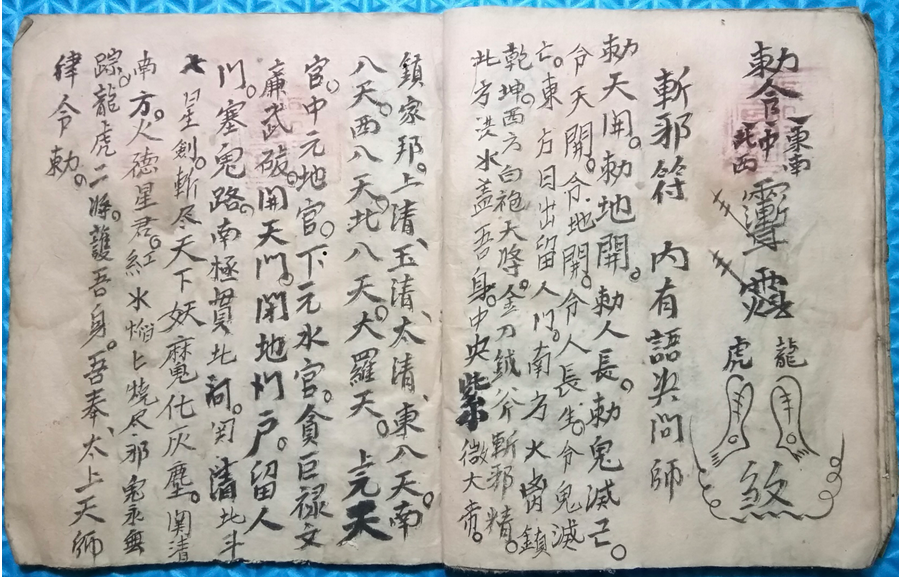 敕令
東南
中
北西
龍
虎
煞
斬邪符 内有語决问師
勅天開。勅地開。勅人長。勅鬼滅亡。
令天開。令地開。令人長生。令鬼滅
亡。東方日出留人门。南方火당鎖
乾坤。西方白袍大將。金刀鉞斧斬邪精。
北方洪水盖吾身。中央紫微大帝。
鎮家邦。上清、玉清、太清、東八天。南
八天。西八天。北八天。大羅天。上元天
官。中元地官。下元水官。貪巨禄文
廉武破。開天门。闭地户。留人
门。塞鬼路。南極貫北河。罡請北斗
七星劍。斬尽天下妖魔化灰塵。関清
南方。火德星君。紅水焰匕燒尽邪鬼永無
踪。龍虎二將。護吾身。吾奉、太上天師
律令勅。